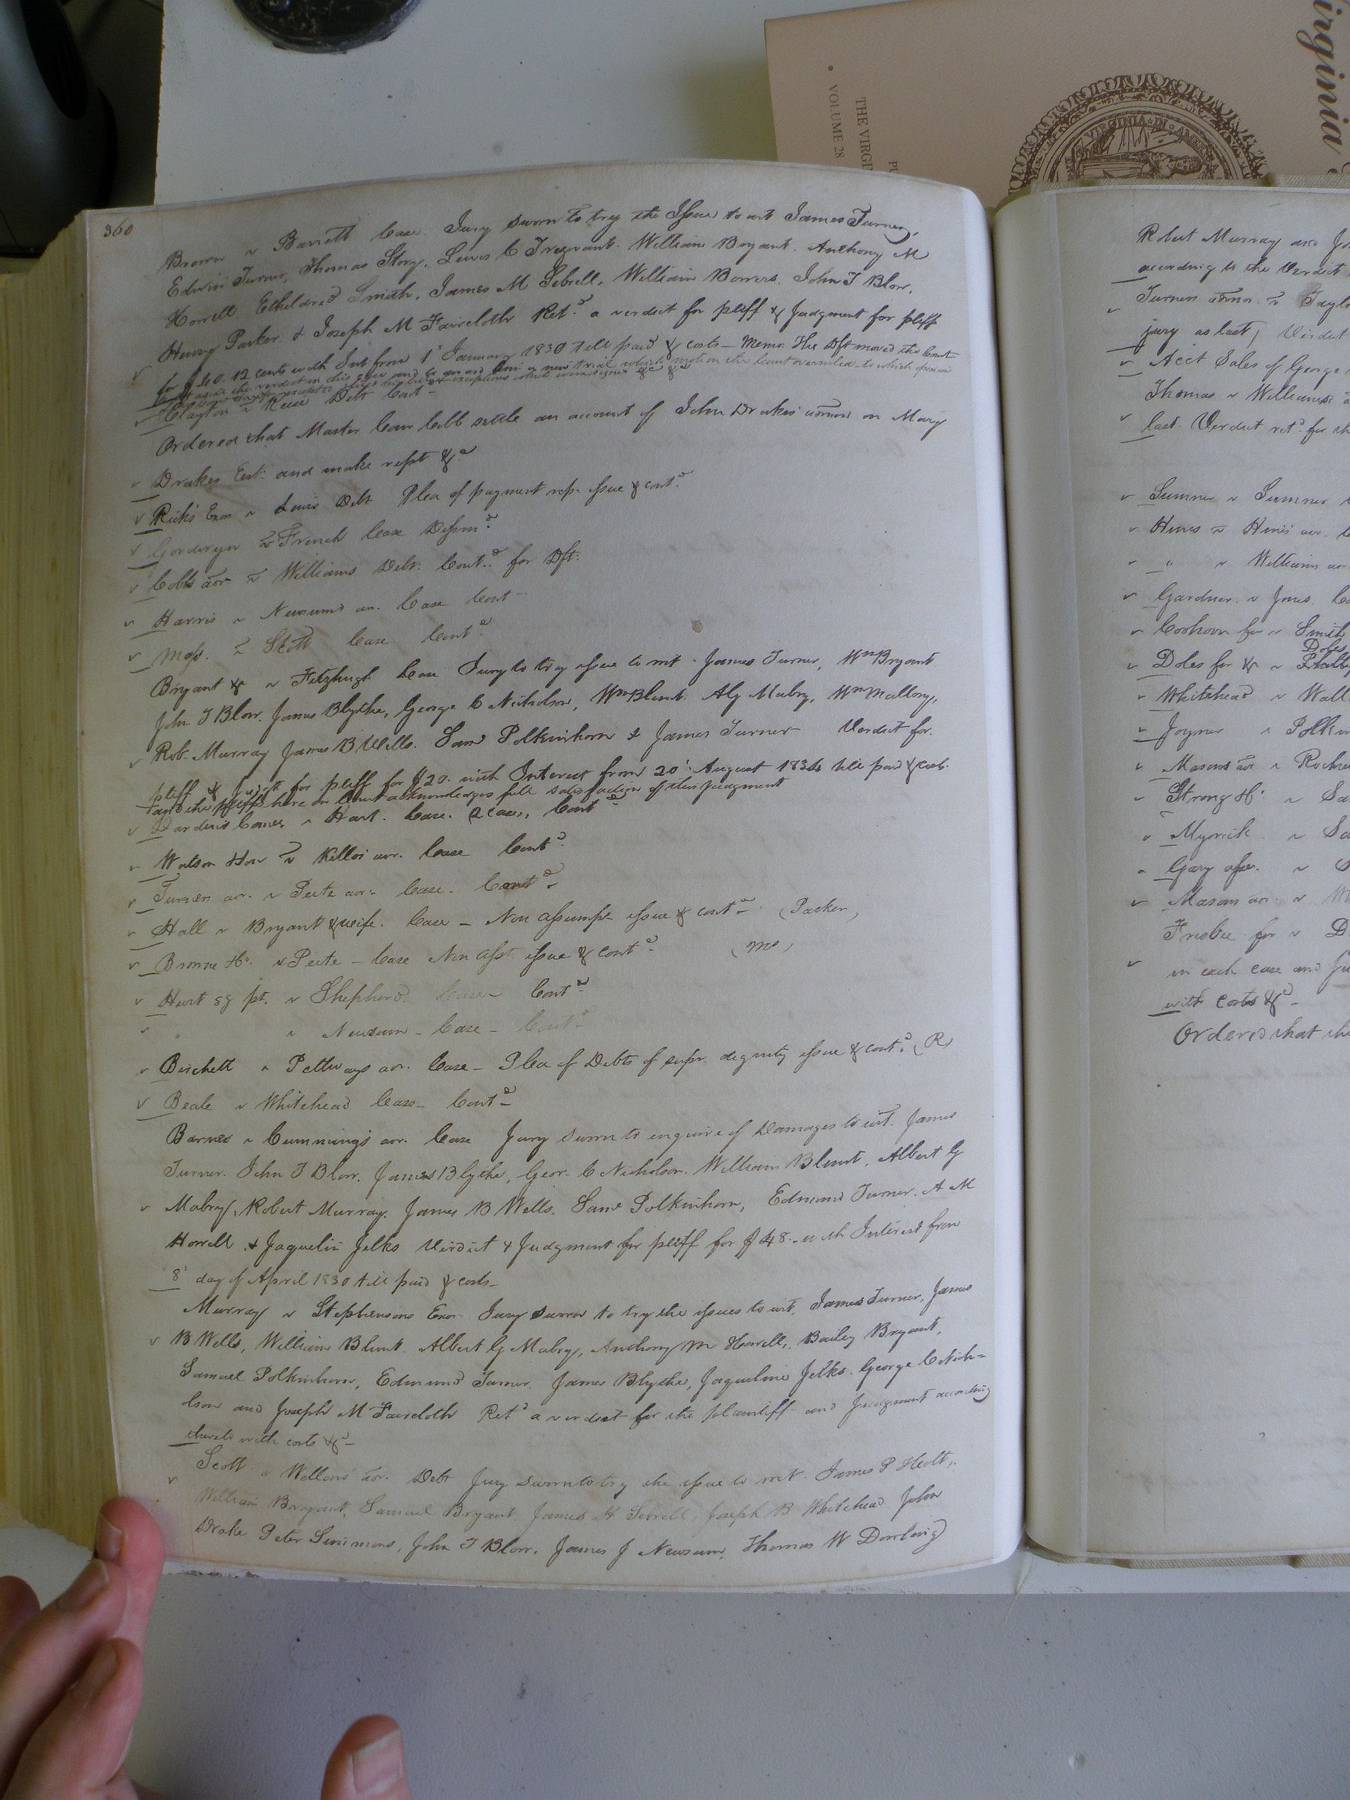 360
Brown v Barrett Case. Jury sworn to try the Issue to wit James Turner,
Edwin Turner, Thomas Story, Lewis C Trezvant. William Bryant. Anthony M
Horrell Etheldred Smith, James M Sebrell, William Bowers, John T Blow,
Henry Parker & Joseph M Faircloth Retd a verdict for pltff & Judgment for pltff
for $40.12 cents with Int from 1st January 1830 till paid & costs - Memo. The Dft moved the Court
the verdict in this case and to award him a new trial which motion the Court overruled to which opinion
Clayton v Rese Debt Cont -
Ordered that Master Com Cobb settle an account of John Drakes admr on Mary
Drakes Est. and make rept &c
Ricks Exor v Lewis Debt Plea of payment rep. issue & contd
Goodwyn v French Case Dismd
Cobb aor v Williams Debt. Contd for Dft.
Harris v Newsums ar. Case Cont
Moss. v Scott Case Contd
Bryant & v Fitzhugh Case Jury to try issue to wit - James Turner, Wm Bryant
John T Blow. James Blythe, George C Nicholson, Wm Blunt. Al G Mabry, Wm Mallory,
Rob. Murray James B Wells. Saml Polkinhorn & James Turner Verdict for
pltff & judgt for pltff for $20. with Interest from 20th August 1834 till paid & costs.
and the pltff here in Court acknowledges full satisfaction of this judgment
Darden's Comee v Hart. Case. (2 Cases, Contd
Watson v Killoi aor. Case Contd
Turner ar. v Peete aor. Case. Contd
Hall v Bryant & wife. Case - Non assumpt issue & contd (Parker)
Browne v Peete - Case Non asst issue & contd (me)
Hart sg pt. v Shepherd Case Contd
" v Newsum - Case - Contd
Birchett v Pettways ar. Case - Plea of Debts of supr. dignity issue & contd (R)
Beale v Whitehead Case - Contd
Barnes v Cummings aor. Case Jury sworn to enquire of Damages to wit. James
Turner. John T Blow. James Blythe, Geor. C Nicholson. William Blunt, Albert G
Mabry, Robert Murray. James B Wells. Saml Polkinhorn, Edmund Turner. A M
Horrell & Jaquelin Jelks Verdict & Judgment for pltff for $48. with Interest from
8th day of April 1830 till paid & costs -
Murray v Stephensons Exor Jury sworn to try the issues to wit, James Turner, James
B Wells, William Blunt. Albert G Mabry, Anthony M Horrell, Bailey Bryant,
Samuel Polkinhorn, Edmund Turner James Blythe, Jaqueline Jelks. George C Nich=
olson and Joseph M Faircloth Retd a verdict for the plaintiff and Judgment according
thereto with costs &c -
Scott v Wellons aor. Debt Jury sworn to try the issue to wit. James P Scott,
William Bryant, Samuel Bryant, James H Sorrell, Joseph B Whitehead John
Drake Peter Simmons, John T Blow. James J Newsum, Thomas W Dowling
Robert Murray and
according to the Verdict
Turner v Tayl
jury as last, Verdict
Acct Sales of George
Thomas v Williams
last Verdict retd for
Sumner v Sumner
Hines v Hines aor.
" v Williams aor.
Gardner v Jones.
Coohoon for v Smith
Doles for & v
Whitehead v Wall
Joyner v Polkin
Masons aor v Roch
Strong v Sa
Myrick v Sa
Gary assee. v
Mason aor v
Frisbie for v D
in each case and Ju
with costs &c -
Ordered that the
Virginia
THE VIRGI
VOLUME 28
VIRGINIA